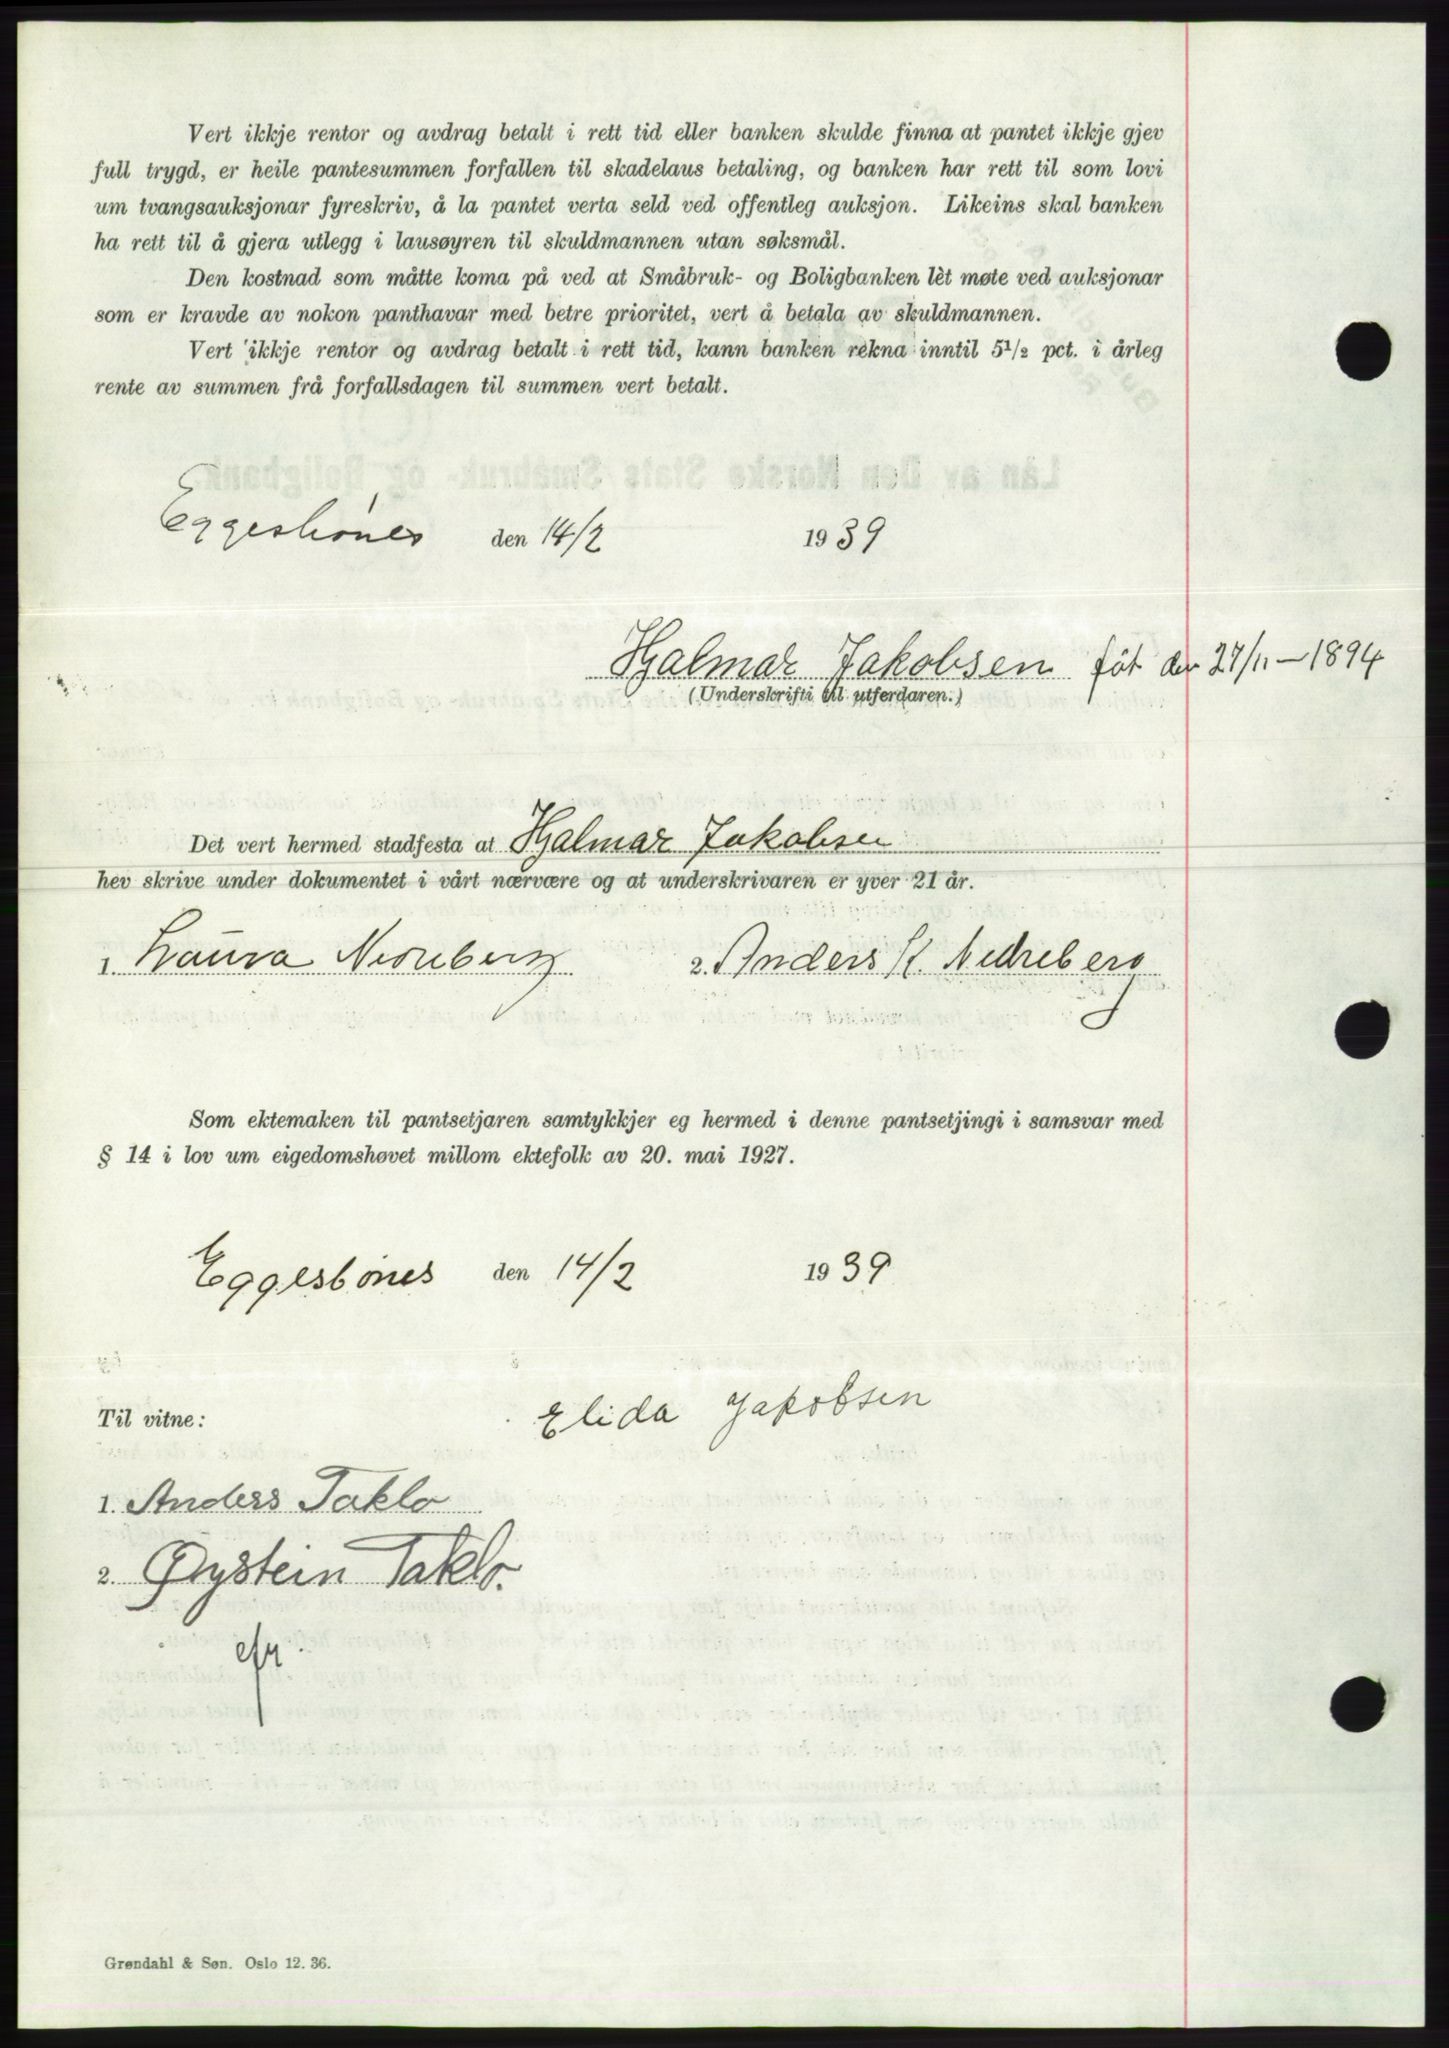 Vert ikkje rentor og avdrag betalt i rett tid eller banken skulde finna at pantet ikkje gjev
full trygd, er heile pantesummen forfallen til skadelaus betaling, og banken har rett til som lovi
um tvangsauksjonar fyreskriv, å la pantet verta seld ved offentleg auksjon. Likeins skal banken
ha rett til å gjera utlegg i lausøyren til skuldmannen utan søksmål.
Den kostnad som måtte koma på ved at Småbruk- og Boligbanken lèt møte ved auksjonar
som er kravde av nokon panthavar med betre prioritet, vert å betala av skuldmannen.
Vert ikkje rentor og avdrag betalt i rett tid, kann banken rekna inntil 5½ pct. i årleg
rente av summen frå forfallsdagen til summen vert betalt.
Lån av Den Norske Stats Småbruk- og Boligbank.
Eggesbønes den 14/2 1939
Hjalmar Jakobsen föt den 27/11 - 1894
(Underskrifti til utferdaren.)
Det vert hermed stadfesta at Hjalmar Jakobsen
hev skrive under dokumentet i vårt nærvære og at underskrivaren er yver 21 år.
1. Laura Nedreberg 2. Anders K. Nedreberg
Som ektemaken til pantsetjaren samtykkjer eg hermed i denne pantsetjingi i samsvar med
§ 14 i lov um eigedomshøvet millom ektefolk av 20. mai 1927.
Eggesbönes den 14/2 1939
Til vitne: Elida Jakobsen
1. Anders Taklo
2. Øystein Taklo.
Grøndahl & Søn. Oslo 12. 36.